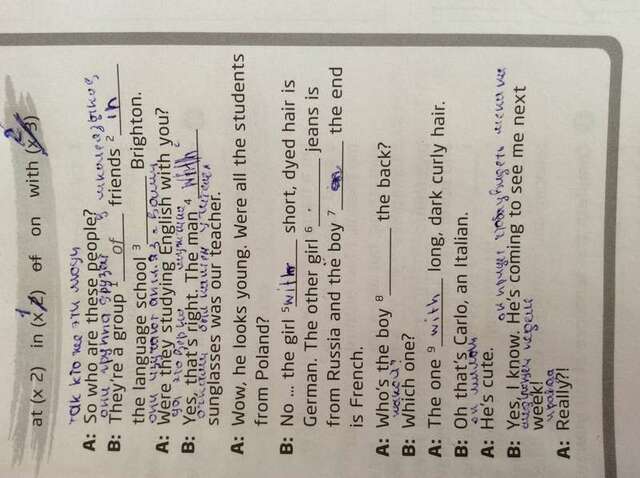 at (x 2) in (x 2) of on with (x 3)
2
так кто же эти люди
A: So who are these people?
они группа друзей
B: They're a group ¹ of friends ² in
the language school ³ ____ Brighton.
A: Were they studying English with you?
да это верно мужчина
B: Yes, that's right. The man ⁴ with
sunglasses was our teacher.
A: Wow, he looks young. Were all the students
from Poland?
B: No ... the girl ⁵ with short, dyed hair is
German. The other girl ⁶ ____ jeans is
from Russia and the boy ⁷ on the end
is French.
A: Who's the boy ⁸ ____ the back?
какой
B: Which one?
A: The one ⁹ with long, dark curly hair.
B: Oh that's Carlo, an Italian.
A: He's cute.
B: Yes, I know. He's coming to see me next
неделе
week!
правда
A: Really?!